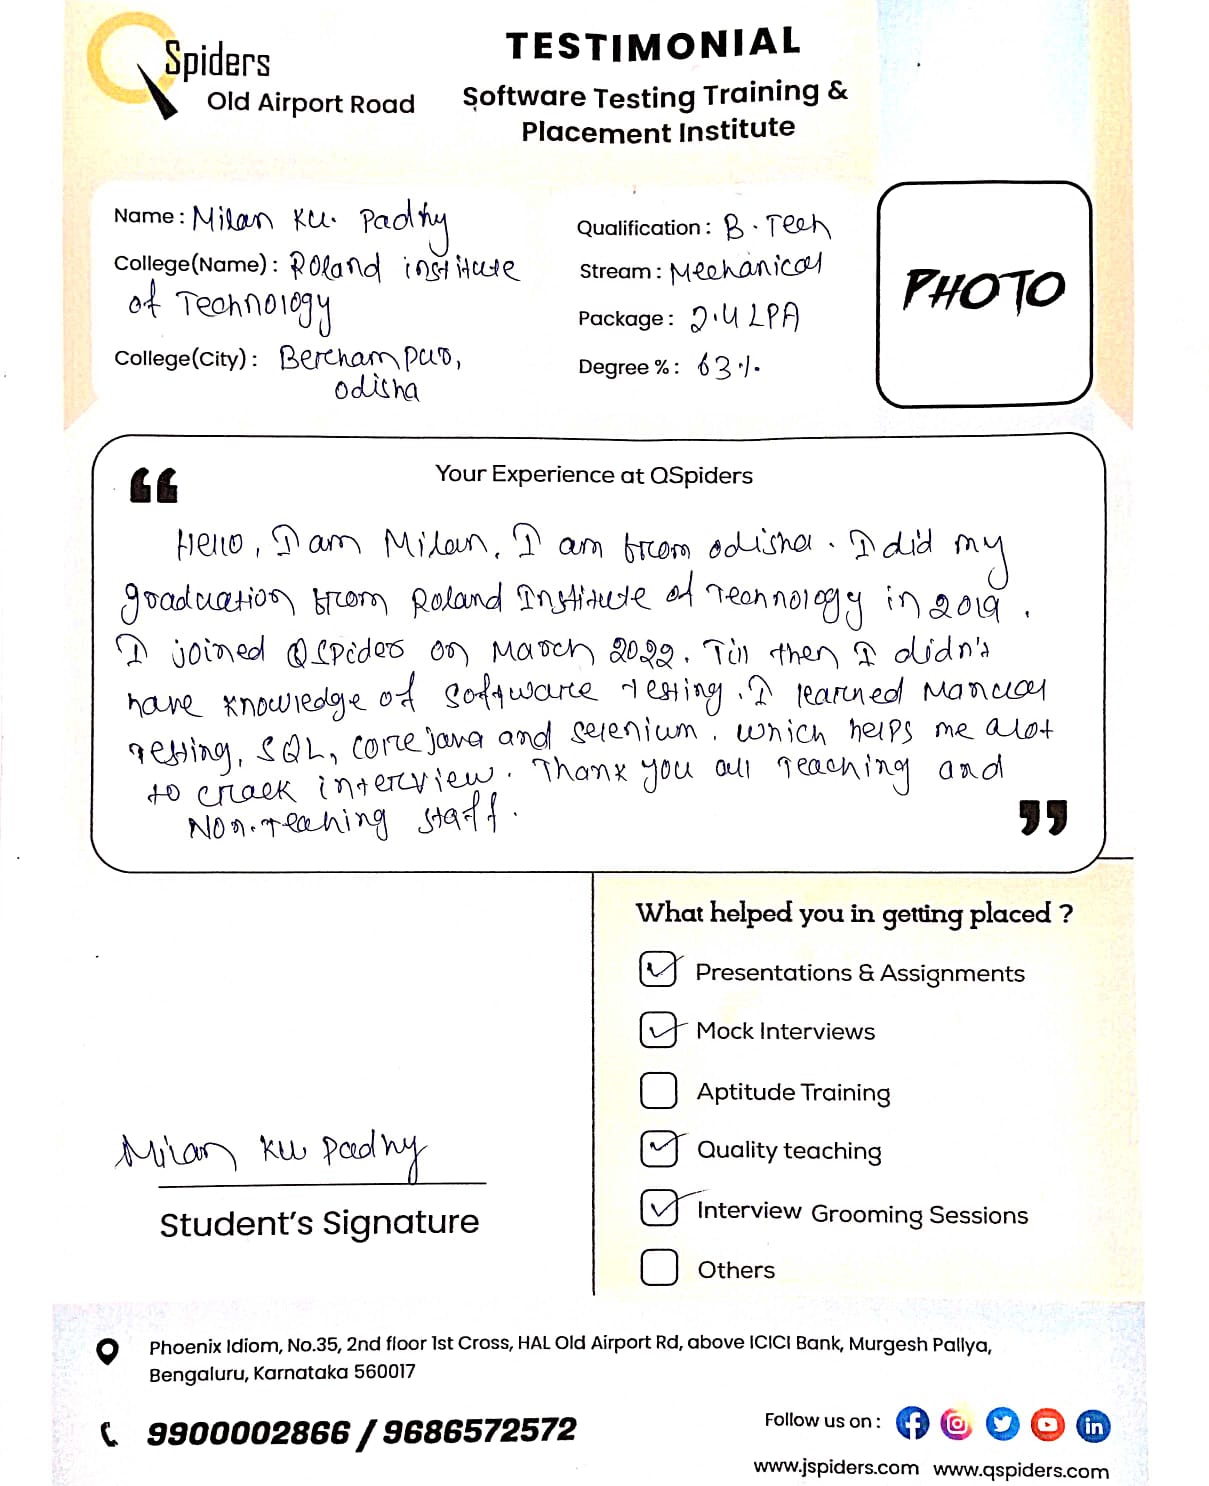 Spiders
Old Airport Road
TESTIMONIAL
Software Testing Training &
Placement Institute
Name : Milan Ku. Padhy
College(Name) : Roland institute
of Technology
College(City) : Berhampur,
odisha
Qualification : B.Tech
Stream : Mechanical
Package : 2.4 LPA
Degree % : 63%
PHOTO
Your Experience at QSpiders
Hello, I am Milan, I am from odisha. I did my
graduation from Roland Institute of Technology in 2019.
I joined QSpiders on March 2022. Till then I didn't
have knowledge of software testing. I learned Manual
testing, SQL, core java and selenium. which helps me alot
to crack interview. Thank you all Teaching and
Non-teaching staff.
What helped you in getting placed ?
Presentations & Assignments
Mock Interviews
Aptitude Training
Quality teaching
Interview Grooming Sessions
Others
Milan Ku Padhy
Student's Signature
Phoenix Idiom, No.35, 2nd floor 1st Cross, HAL Old Airport Rd, above ICICI Bank, Murgesh Pallya,
Bengaluru, Karnataka 560017
9900002866 / 9686572572
Follow us on :
www.jspiders.com www.qspiders.com